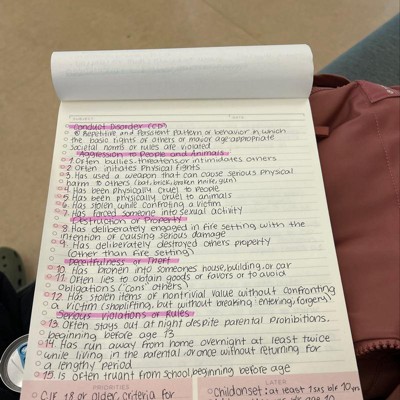 SUBJECT DATE
Conduct Disorder (CD)
Repetitive and Persistent Pattern of behavior in which
the basic rights of others or major age-appropriate
societal norms or rules are violated
Aggression to People and Animals
1. Often bullies, threatens, or intimidates others
2. Often initiates physical fights
3. Has used a weapon that can cause serious physical
harm to others (bat, brick, broken knife, gun)
4. Has been physically cruel to people
5. Has been physically cruel to animals
6. Has stolen while confronting a victim
7. Has forced someone into sexual activity
Destruction of Property
8. Has deliberately engaged in fire setting with the
intention of causing serious damage
9. Has deliberately destroyed others property
(other than fire setting)
Deceitfulness or Theft
10. Has broken into someones house, building, or car
11. Often lies to obtain goods or favors or to avoid
obligations (cons others)
12. Has stolen items of nontrivial value without confronting
a victim (shoplifting, but without breaking/entering, forgery)
Serious violations of Rules
13. Often stays out at night despite parental prohibitions.
beginning before age 13
14. Has run away from home overnight at least twice
while living in the parental or once without returning for
a lengthy period
15. Is often truant from school, beginning before age
PRIORITIES LATER
C IF 18 or older, criteria for
Child onset: at least 1 sxs b/f 10 yrs